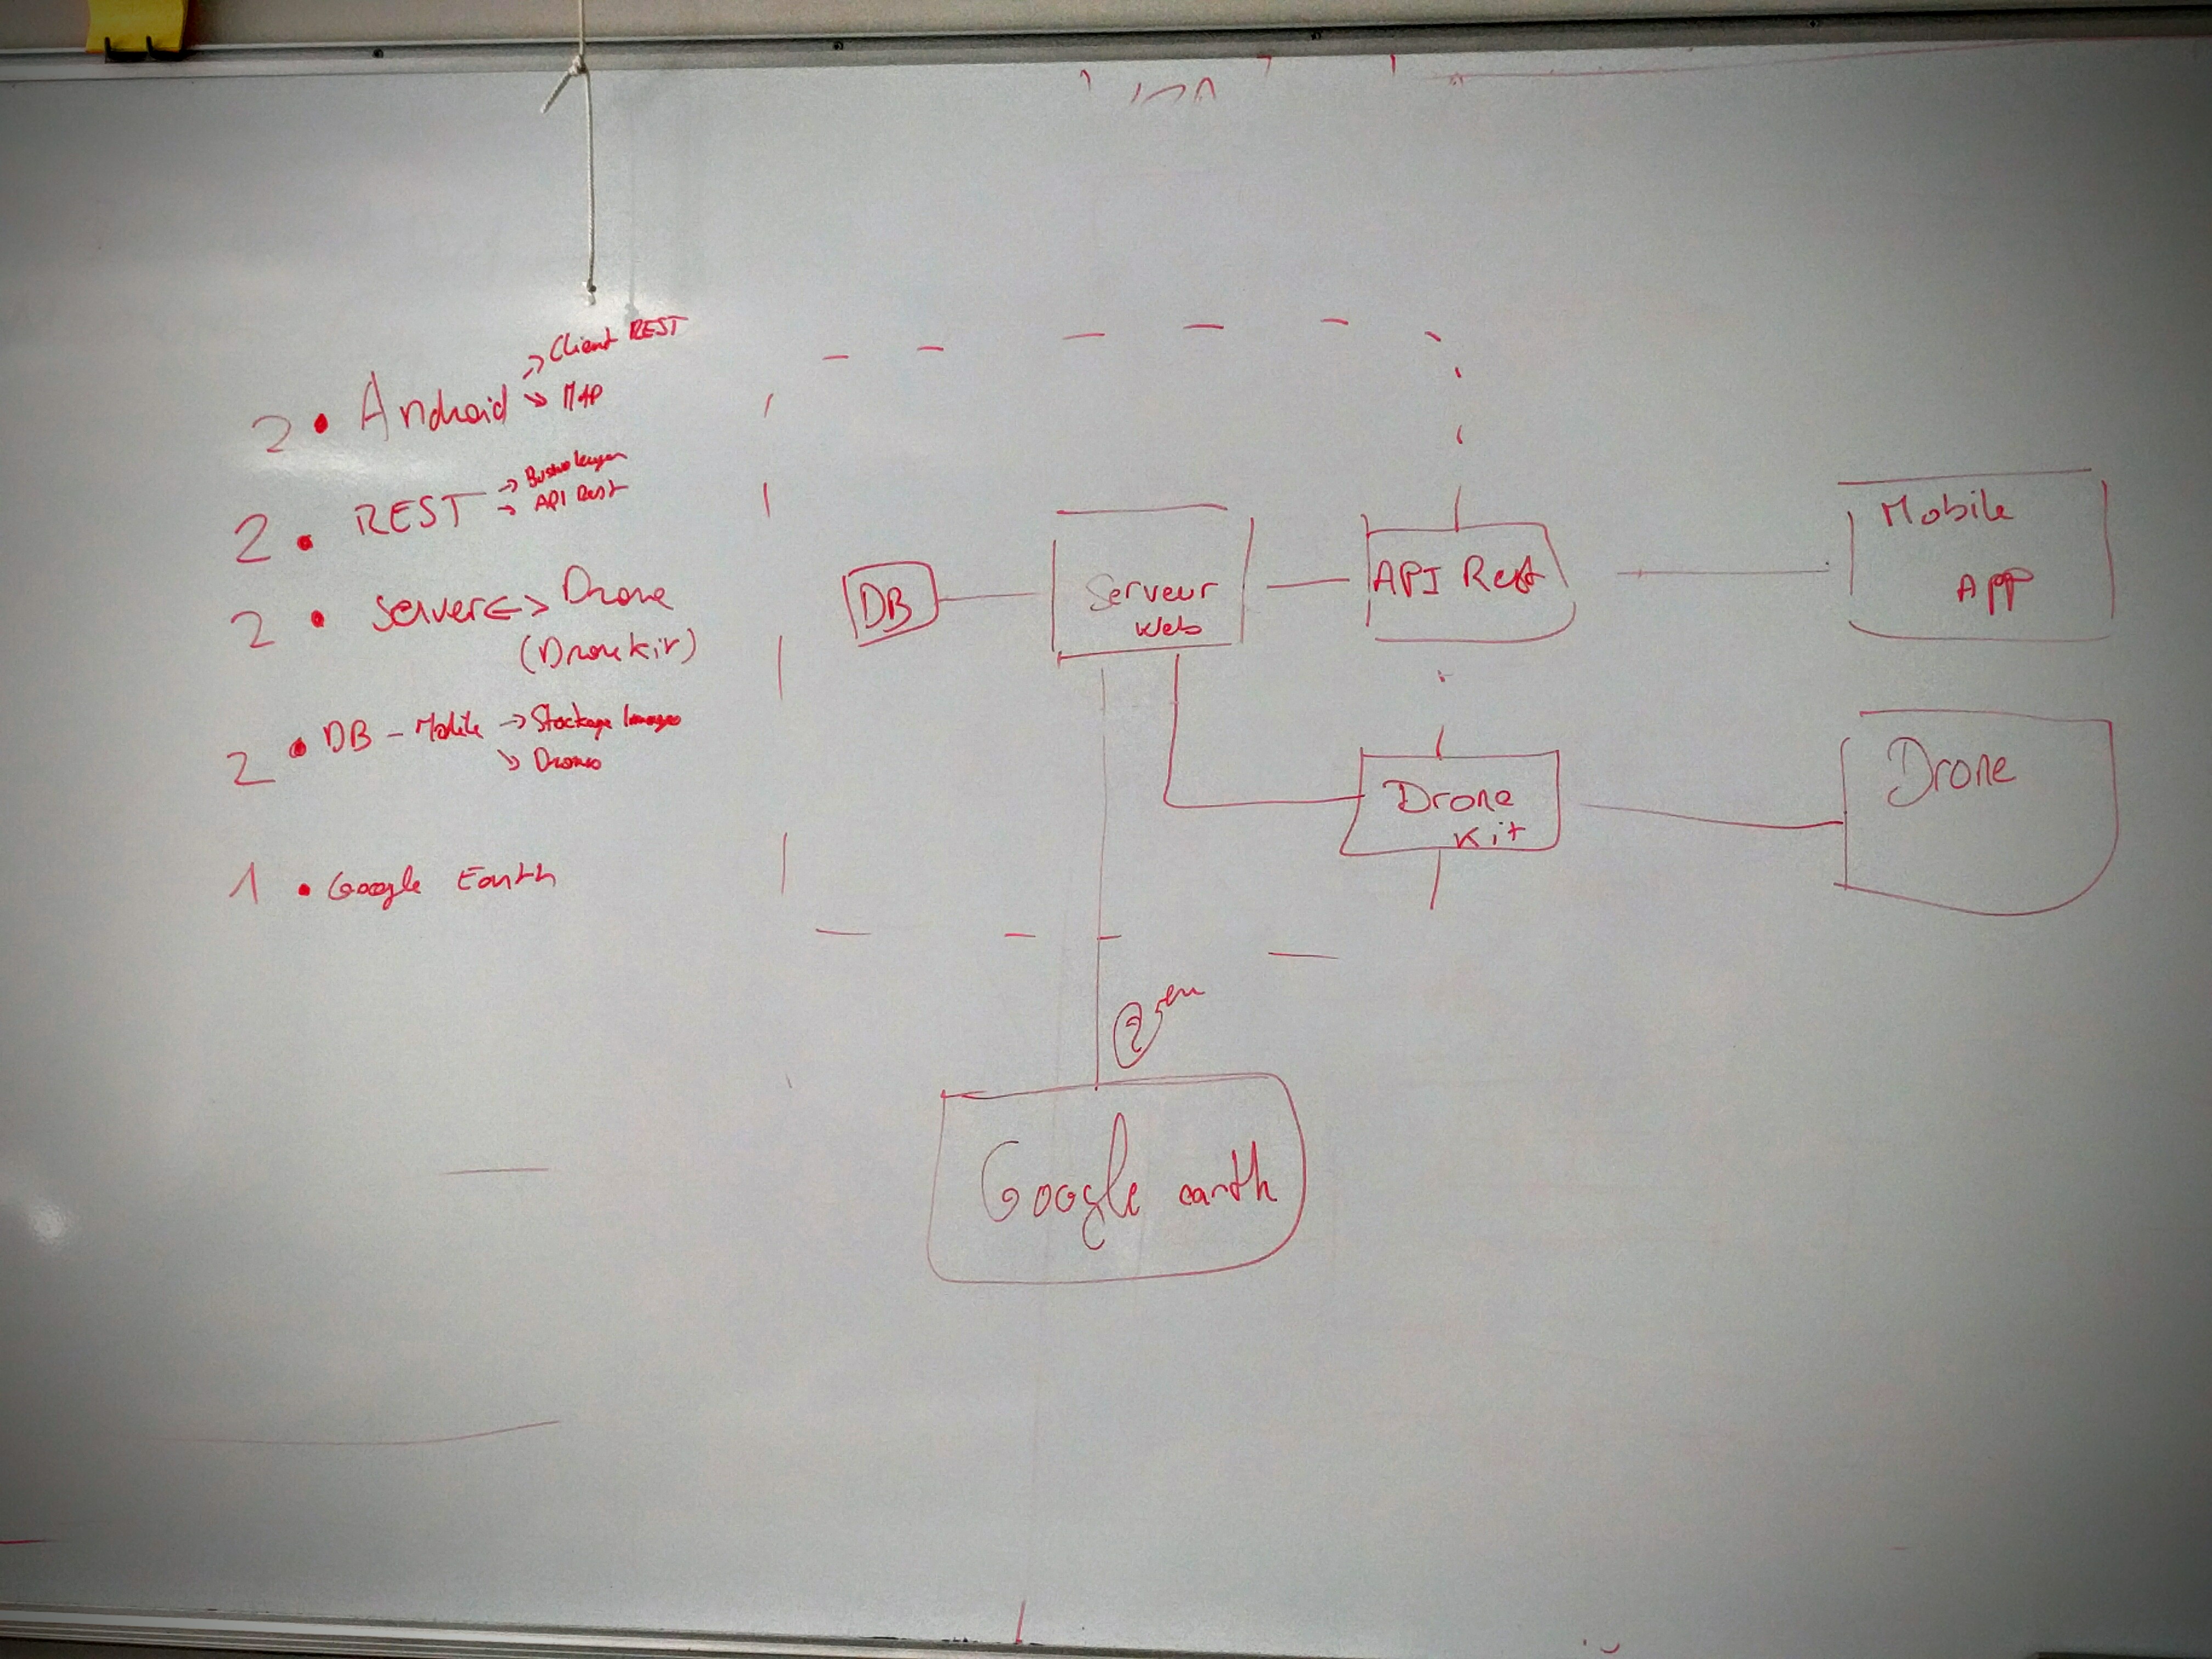 2 • Android → Client REST
↘ MAP
2 • REST → Business layer
→ API Rest
2 • Server <-> Drone
(DroneKit)
2 • DB - Mobile → Stockage Images
↘ Drones
1 • Google Earth
DB
Serveur
Web
API Rest
Mobile
APP
Drone
Kit
Drone
Google earth